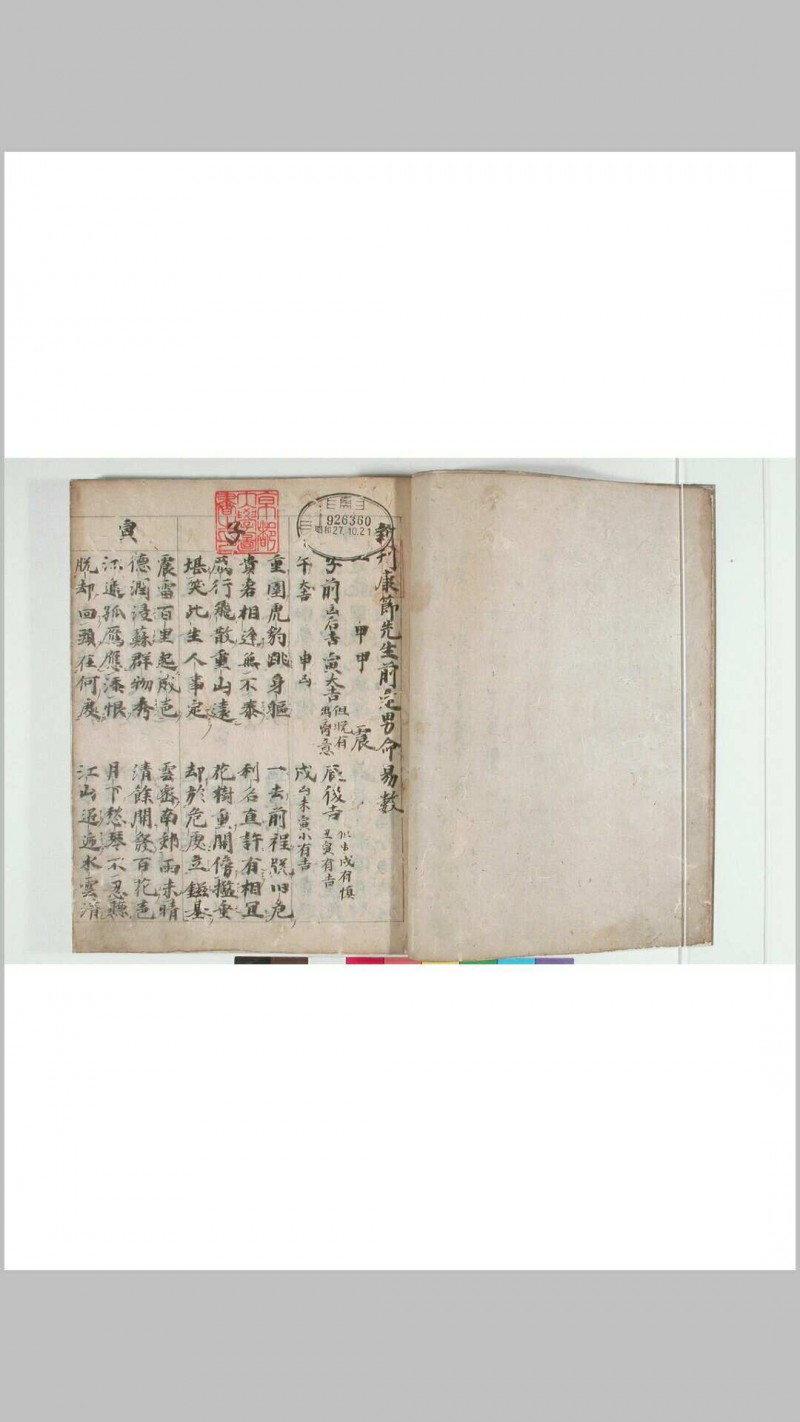 新刊康節先生前定男命易數
一 甲甲 震
子前凶后吉 寅大吉 但恨有 辰後吉 有慎 丑寅有吉
午大吉 申凶 戌 寅小有吉
926360
昭和27.10.21
京都大學圖書之印
子
重圍虎豹跳身軀 一去前程脫旧危
貴者相逢無不泰 利名直許有相宜
鴈行飛散重山遠 花樹重開傍檻垂
堪笑此生人事定 却於危處立鎡基
寅
震雷百里起成邑 雲密南郊雨未晴
德潤浸蘇群物秀 清餘開發百花色
江邊孤鴈應添恨 月下愁琴不忍聽
脫却回頭在何處 江山迢遞水雲消